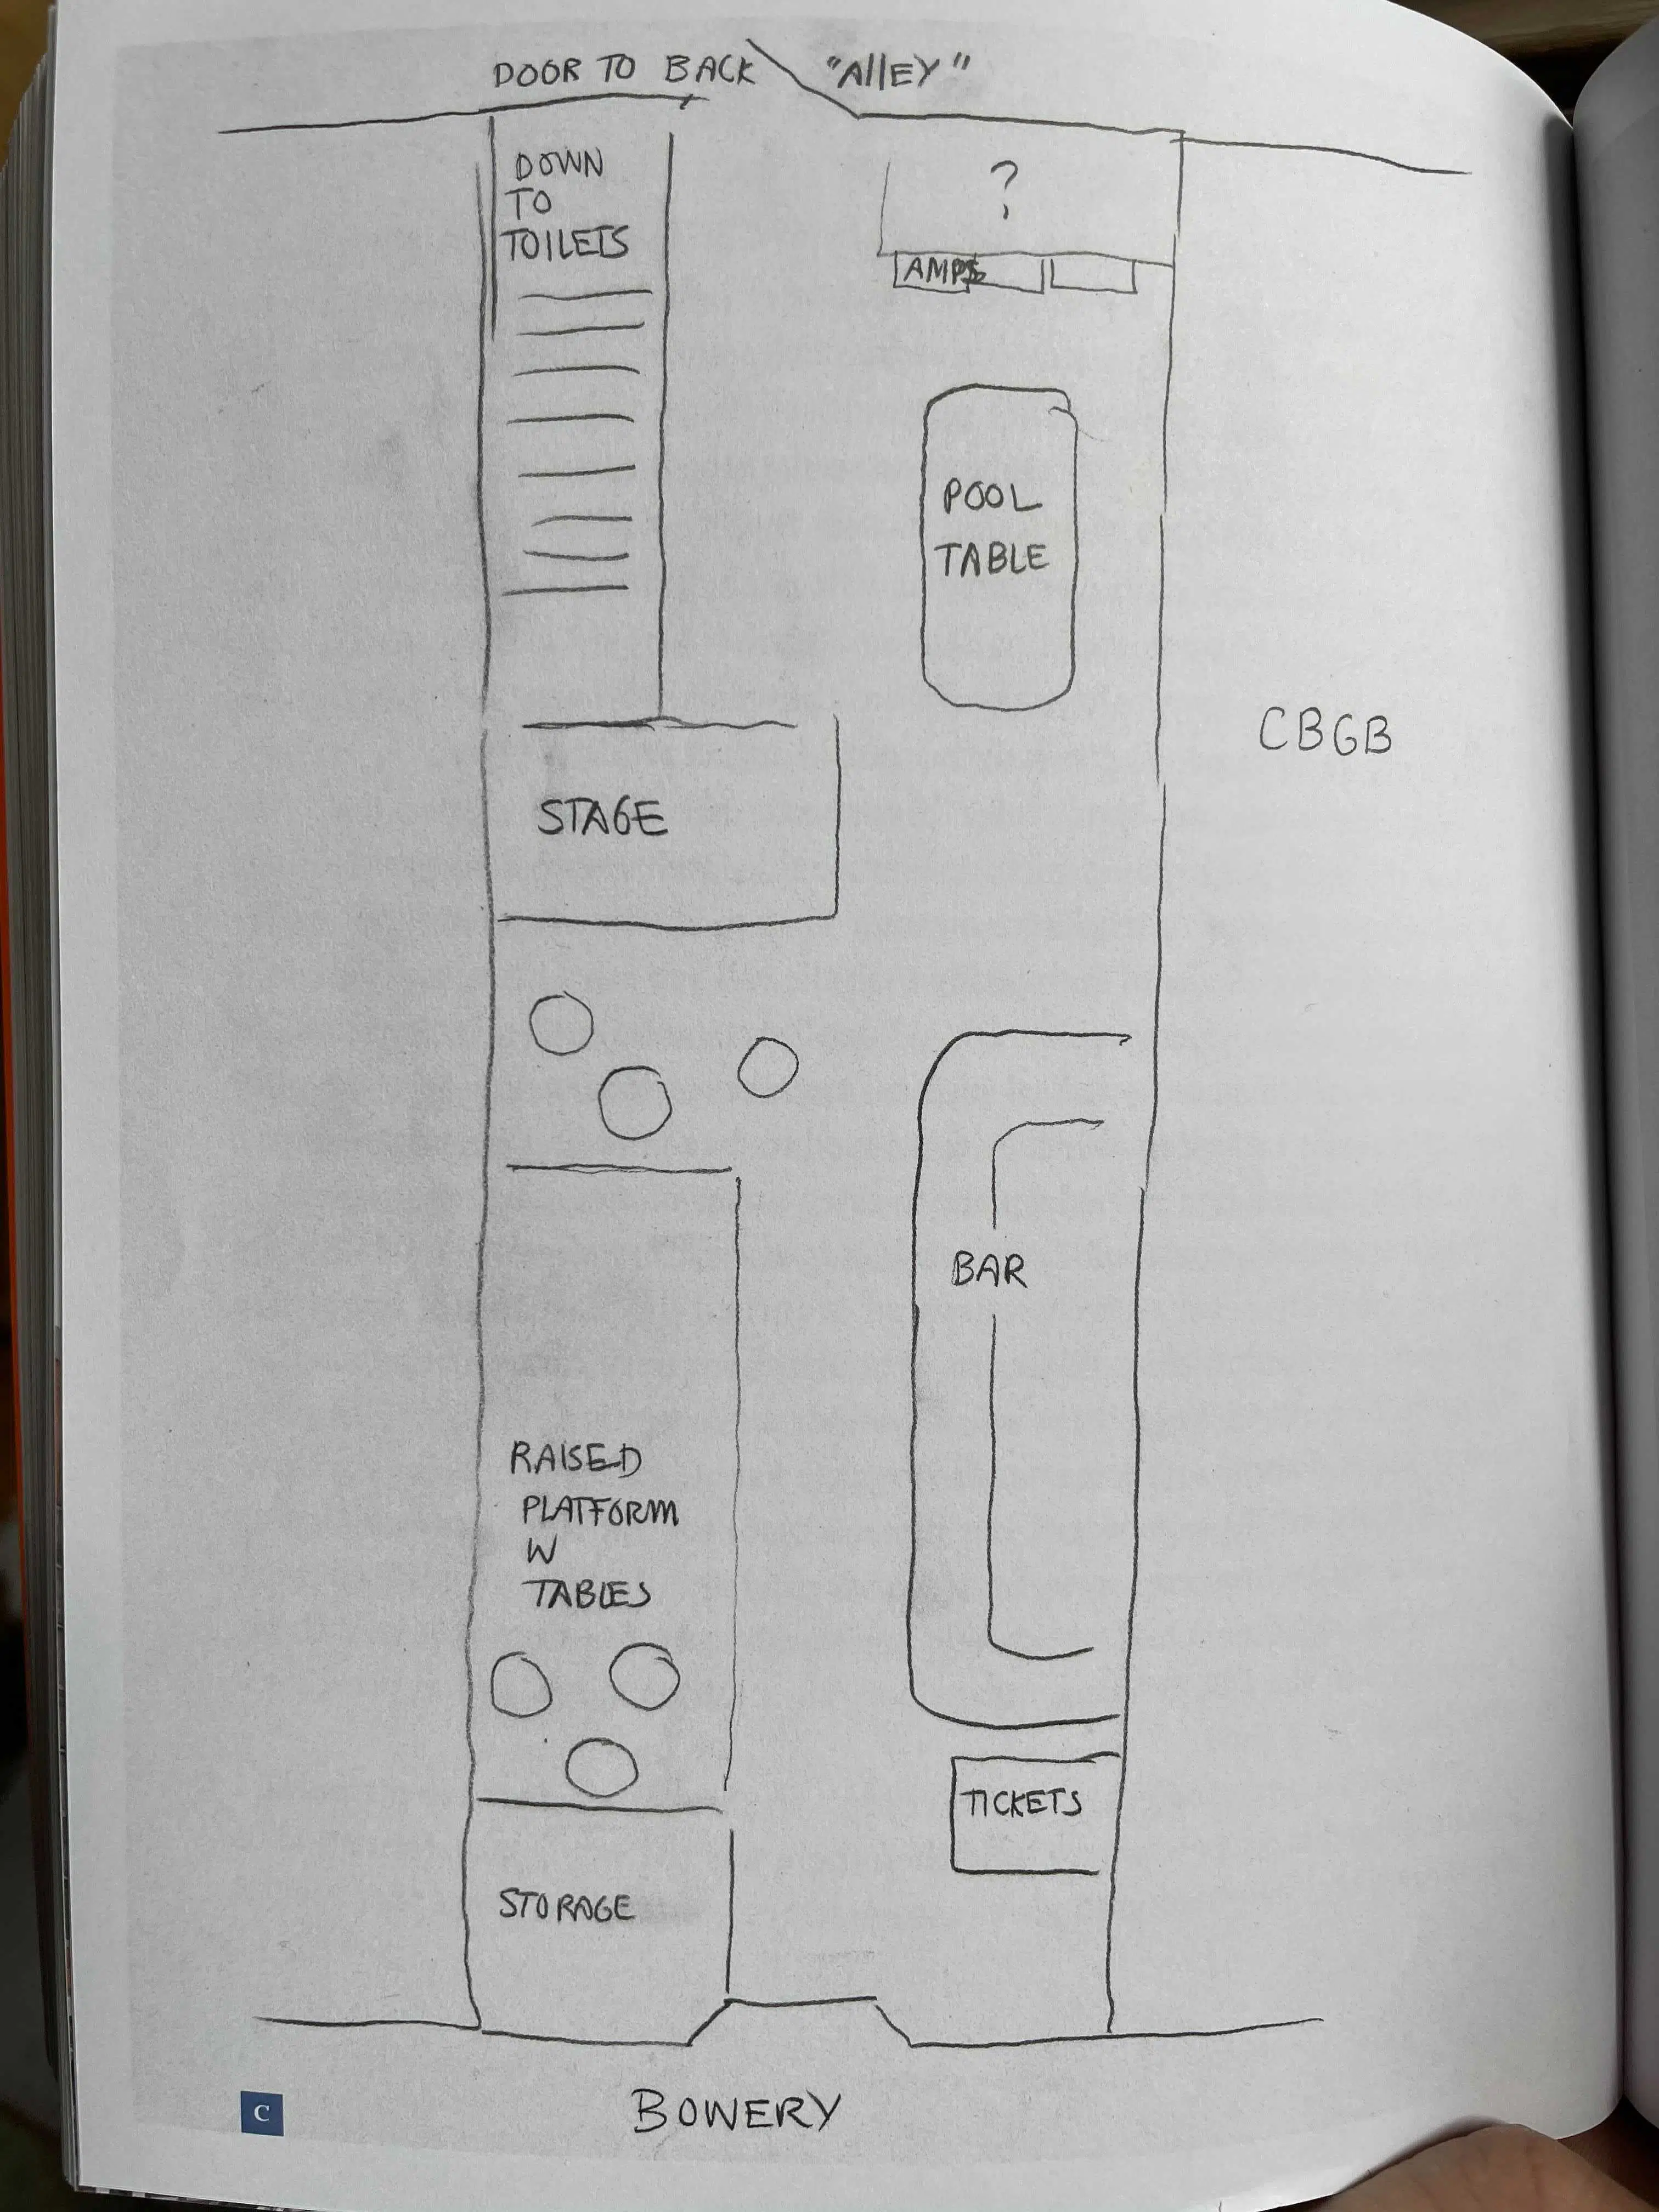 DOOR TO BACK "AllEY"
DOWN
TO
TOILETS
?
AMPS
POOL
TABLE
CBGB
STAGE
BAR
RAISED
PLATFORM
W
TABLES
TICKETS
STORAGE
BOWERY
C